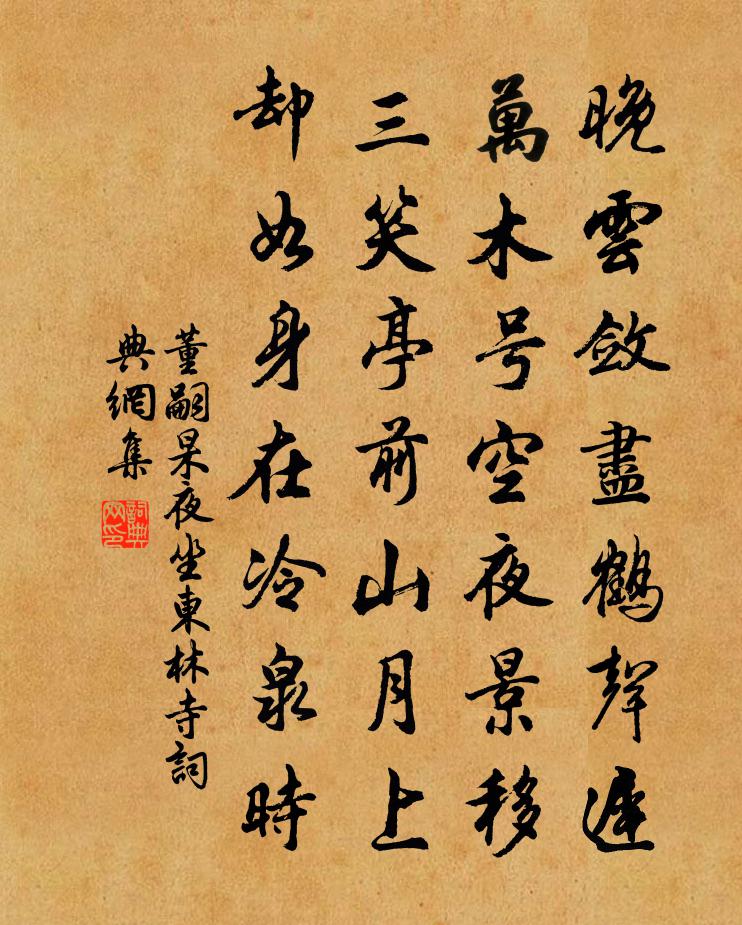 晚雲斂盡鶴聲遲
萬木号空夜景移
三笑亭前山月上
却如身在冷泉時
董嗣杲夜坐東林寺詞
典網集
詞典網印